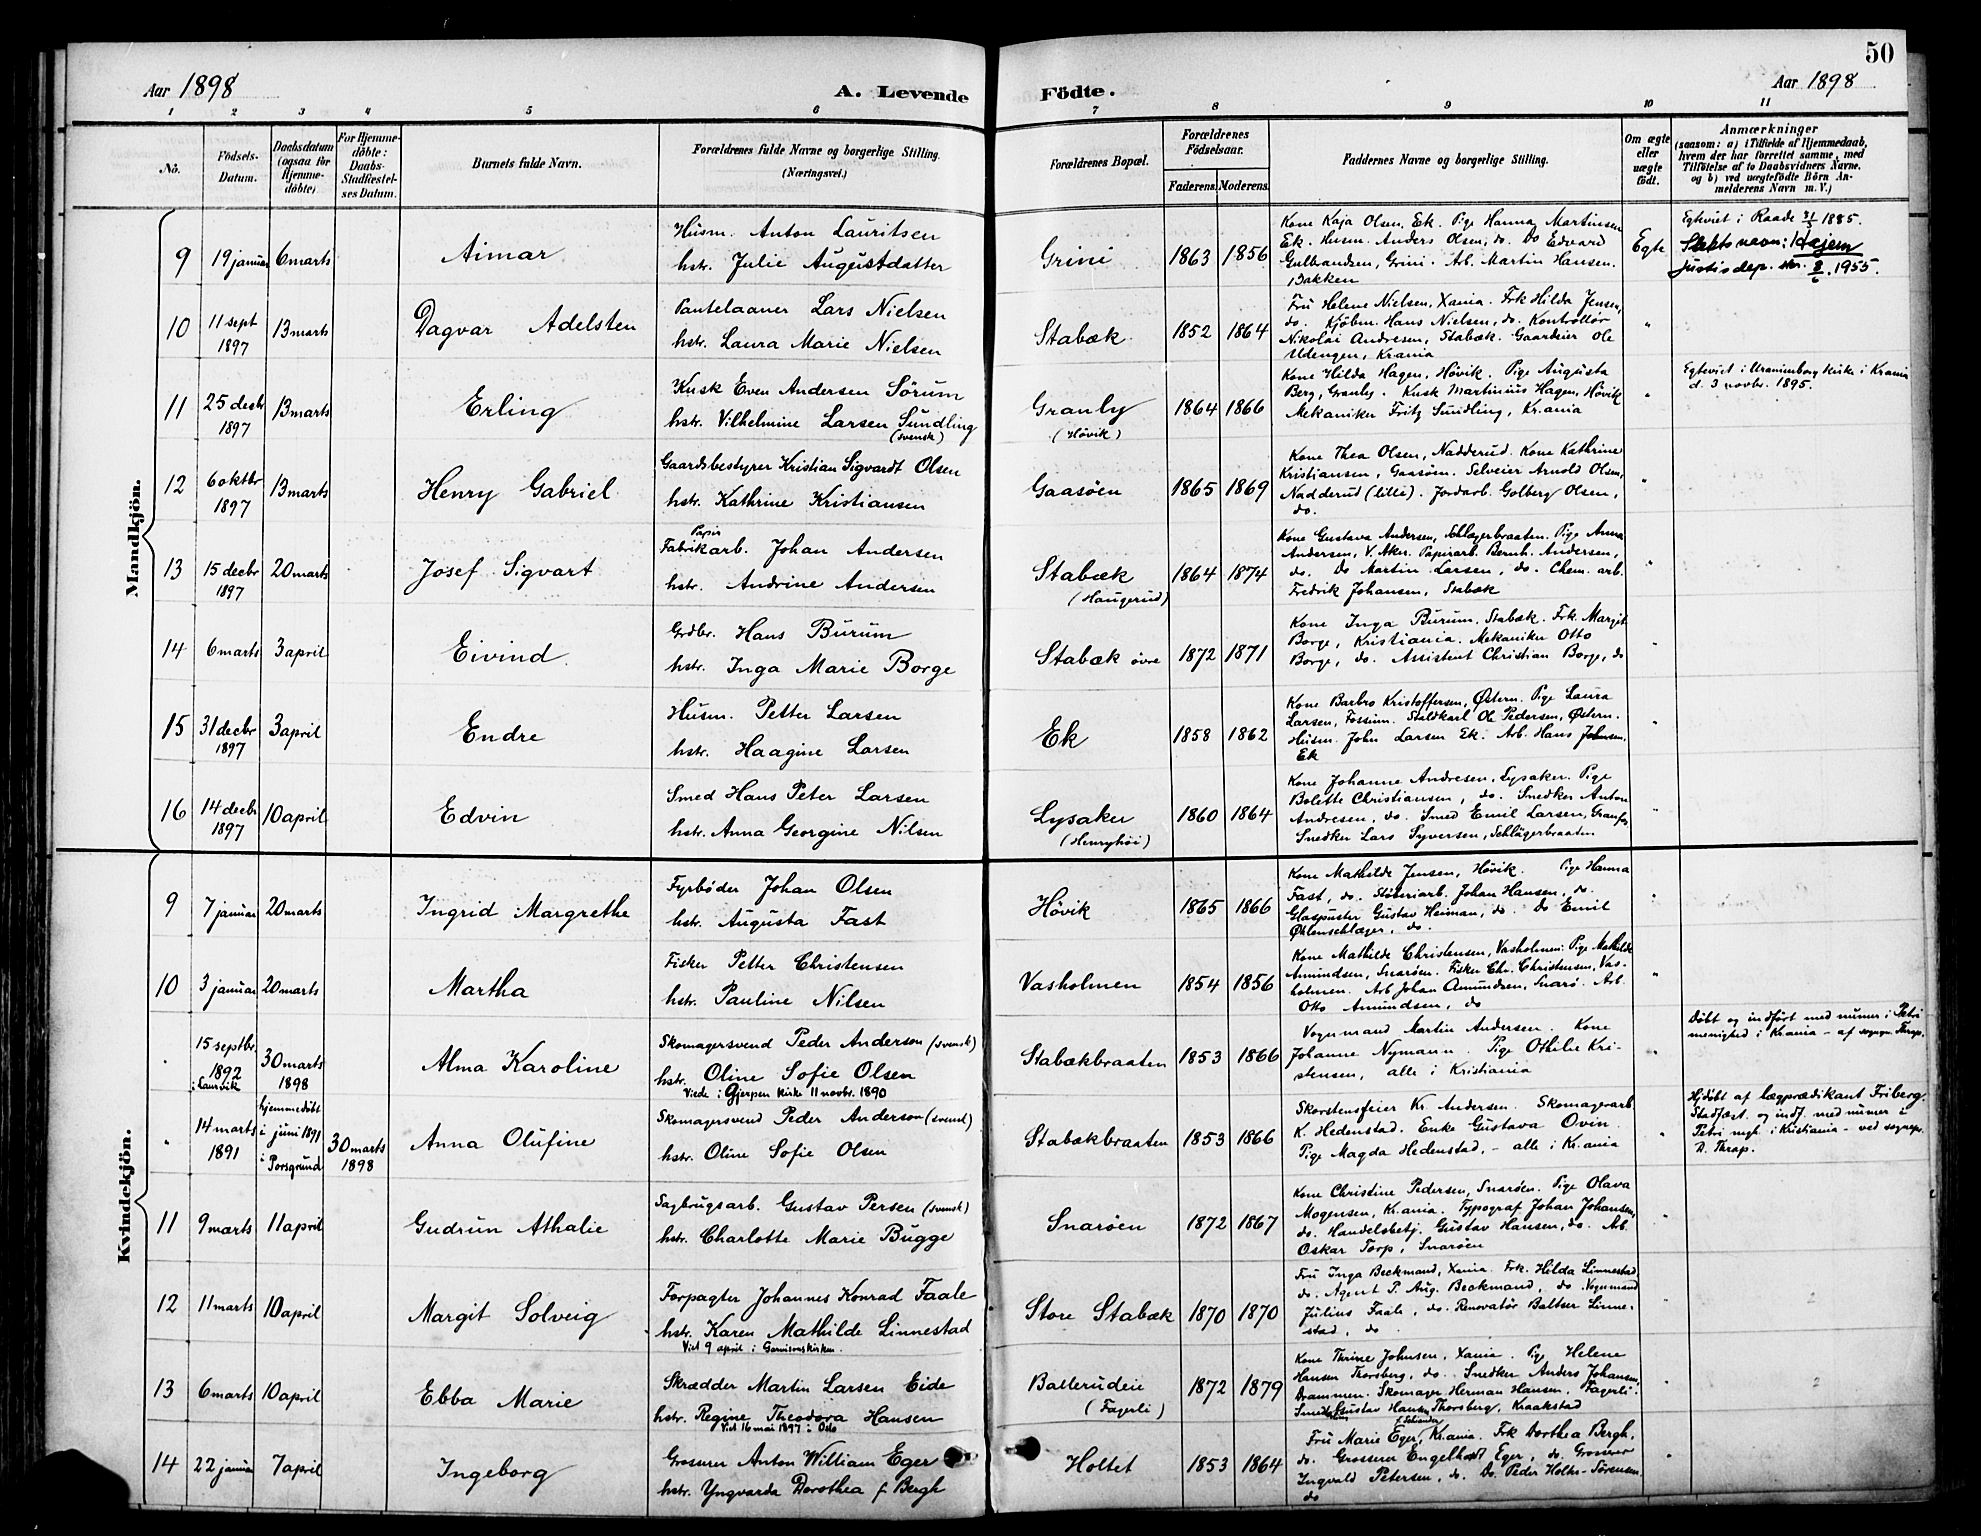 50
Aar 1898
A. Levende
Födte.
Aar 1898
1 2 3 4 5 6 7 8 9 10 11
No.
Födsels-
Datum.
Daabsdatum
(ogsaa för
Hjemme-
döbte)
For Hjemme-
döbte:
Daabs-
Stadfæstel-
ses Datum.
Barnets fulde Navn.
Forældrenes fulde Navne og borgerlige Stilling.
(Næringsvei.)
Forældrenes Bopæl.
Forældrenes
Födselsaar.
Faderens. Moderens.
Faddernes Navne og borgerlige Stilling.
Om ægte
eller
uægte
födt.
Anmærkninger
(saasom: a) i Tilfælde af Hjemmedaab,
hvem der har forrettet samme, med
Tilföielse af to Daabsvidners Navne.
og b) ved uægtefödte Börn An-
melderens Navn m. V.)
Mandkjön.
9 19 januar 6 marts
Aimar
Husm. Anton Lauritsen
hstr. Julie Augustdatter
Grini 1863 1856
Kone Kaja Olsen, Ek. Pige Hanna Martinsen
Ek. Husm. Anders Olsen, do. Do Edvard
Gulbrandsen, Grini. Arb. Martin Hansen.
Bakken
Egte
Egteviet i Raade 1885.
Slektsnavn: Hajem
justisdep. 1955.
10 11 sept 1897 13 marts
Dagvar Adelsten
Pantelaaner Lars Nielsen
hstr. Laura Marie Nielsen
Stabæk 1852 1864
Fru Helene Nielsen, Xania. Frk Hilda Jensen,
do. Kjöbm. Hans Nielsen, do. Kontrollör
Nikolai Andresen, Stabæk. Gaardeier Ole
Udengen, Krania
"
11 25 decbr 1897 13 marts
Erling
Kusk Even Andersen Sörum
hstr. Vilhelmine Larsen Sundling
(svensk)
Granly
(Høvik)
1864 1866
Kone Hilda Hagen, Høvik. Pige Augusta
Berg, Granly. Kusk Martinius Hagen, Høvik
Mekaniker Fritz Sundling, Kr.ania
"
Egteviet i Uranienborg kirke i Krania
d. 3 novbr. 1895.
12 6 oktbr 1897 13 marts
Henry Gabriel
Gaardsbestyrer Kristian Sigvardt Olsen
hstr. Kathrine Kristiansen
Gaasöen 1865 1869
Kone Thea Olsen, Nadderud. Kone Kathrine
Kristiansen, Gaasöen. Selveier Arnold Olsen,
Nadderud (lille). Jordarb. Golberg Olsen,
do.
"
13 15 decbr 1897 20 marts
Josef Sigvart
Papir
Fabrikarb. Johan Andersen
hstr. Andrine Andersen
Stabæk
(Haugerud)
1864 1874
Kone Gustava Andersen, Schlægerbraaten. Pige Anna
Andersen, V. Aker. Papirarb. Bernh. Andersen,
do. Do Martin Larsen, do. Chem. arb.
Fredrik Johansen, Stabæk
"
14 6 marts 3 april
Eivind
Grdbr. Hans Burum
hstr. Inga Marie Borge
Stabæk övre 1872 1871
Kone Inga Burum, Stabæk. Frk. Margit
Borge, Kristiania. Mekaniker Otto
Borge, do. Assistent Christian Borge, do
"
15 31 decbr 1897 3 april
Endre
Husm. Petter Larsen
hstr. Haagine Larsen
Ek 1858 1862
Kone Barbro Kristoffersen, Østern. Pige Laura
Larsen, Fossum. Staldkarl Ole Pedersen, Østern.
Husm. John Larsen Ek. Arb. Hans Johnsen,
Ek
"
16 14 decbr 1897 10 april
Edvin
Smed Hans Peter Larsen
hstr. Anna Georgine Nilsen
Lysaker
(Henryhöi)
1860 1864
Kone Johanne Andresen, Lysaker. Pige
Bolette Christiansen, do. Snedker Anton
Andresen, do. Smed Emil Larsen, Granfos
Snedker Lars Syversen, Schlägerbraaten
"
Kvindekjön.
9 7 januar 20 marts
Ingrid Margrethe
Fyrböder Johan Olsen
hstr. Augusta Fast
Høvik 1865 1866
Kone Mathilde Jensen, Høvik. Pige Hanna
Fast, do. Støberiarb. Johan Hansen, do.
Glaspuster Gustav Heiman, do. Do Emil
Øhlenschlæger, do.
"
10 3 januar 20 marts
Martha
Fisker Petter Christensen
hstr. Pauline Nilsen
Vasholmen 1854 1856
Kone Mathilde Christensen, Vasholmen. Pige Mathilde
Amundsen, Snarøen. Fisker Chr. Christensen, Vas-
holmen. Arb Johan Amundsen, Snarø. Arb.
Otto Amundsen, do
"
" 15 septbr. 1892 i Laurvik 30 marts 1898
Alma Karoline
Skomagersvend Peder Anderson (svensk)
hstr. Oline Sofie Olsen
Viede i Gjerpen kirke 11 novbr. 1890
Stabækbraaten 1853 1866
Vognmand Martin Andersen. Kone
Johanne Nymann. Pige Othilie Kri-
stensen, alle i Kristiania
"
Döbt og indført med numer i Petri
menighed i Krania – af sogepr. Thrap.
" 14 marts 1891
hjemmedöbt
i juni 1891
i Porsgrund
30 marts 1898
Anna Olufine
Skomagersvend Peder Anderson (svensk)
hstr. Oline Sofie Olsen
Stabækbraaten 1853 1866
Skorstensfeier Kr. Andersen. Skomagerarb.
K. Hedenstad. Enke Gustava Ovin.
Pige Magda Hedenstad, – alle i Kr.ania
"
Hjdöbt af lægprædikant Friberg.
Stadfæst. og indf. med numer i
Petri mgh. i Kristiania – ved sognepr.
D. Thrap.
11 9 marts 11 april
Gudrun Athalie
Sagbrugsarb. Gustav Persen (svensk)
hstr. Charlotte Marie Bugge
Snarøen 1872 1867
Kone Christine Pedersen, Snarøen. Pige Olava
Mogensen, Kr.ania. Typograf Johan Johansen,
do. Handelsbetj. Gustav Hansen, do. Arb.
Oskar Torp, Snarøen
"
12 11 marts 10 april
Margit Solveig
Forpagter Johannes Konrad Faale
hstr. Karen Mathilde Linnestad
Viet 9 april i Garnisonskirken.
Store Stabæk 1870 1870
Fru Inga Beckmand, Xania. Frk. Hilda Linnestad
do. Agent P. Aug. Beckmand, do. Vognmand
Julius Faale, do. Renovatør Baltser Linne-
stad, do
"
13 6 marts 10 april
Ebba Marie
Skrædder Martin Larsen Eide
hstr. Regine Theodora Hansen
Viet 16 mai 1897 i Oslo
Ballerudeie
(Fagerli)
1872 1879
Kone Thrine Johnsen, Xania. Pige Helene
Hansen Thorsberg, do. Snedker Anders Johansen,
Drammen. Skomager Herman Hansen, Fagerli.
Smed Gustav Hansen Thorsberg, Kraakstad
"
14 22 januar 7 april
Ingeborg
Grosserer Anton William Eger
hstr. Yngvarda Dorothea f Bergh
Holtet 1853 1864
Fru Marie Eger, Kr.ania. Frk Dorthea Bergh,
do. Grosserer Engelhardt Eger, do. Grosserer
Ingvald Petersen, do. Do. Peder Holter-Sörensen
do
"